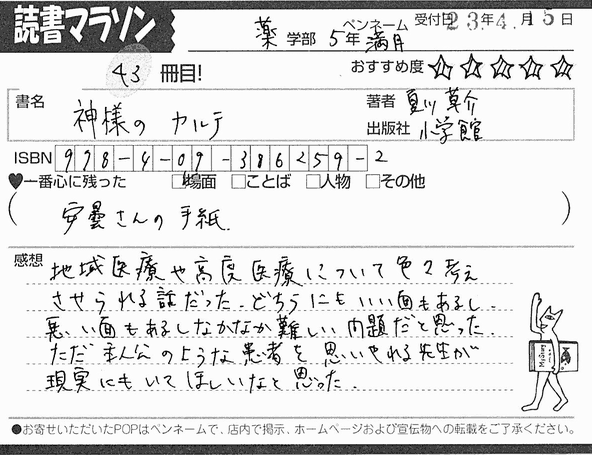 読書マラソン
薬 学部 5年 ペンネーム 満月 受付日 23年4月15日
43 冊目! おすすめ度 ☆☆☆☆☆
書名 神様のカルテ
著者 夏川草介
出版社 小学館
ISBN 978-4-09-386259-2
♥一番心に残った □場面 □ことば □人物 □その他
(安曇さんの手紙.)
感想 地域医療や高度医療について色々考え
させられる話だった.どちらにもいい面もあるし.
悪い面もあるしなかなか難しい問題だと思った.
ただ主人公のような患者を思いやれる先生が
現実にもいてほしいなと思った.
●お寄せいただいたPOPはペンネームで、店内で掲示、ホームページおよび宣伝物への転載をご了承ください。